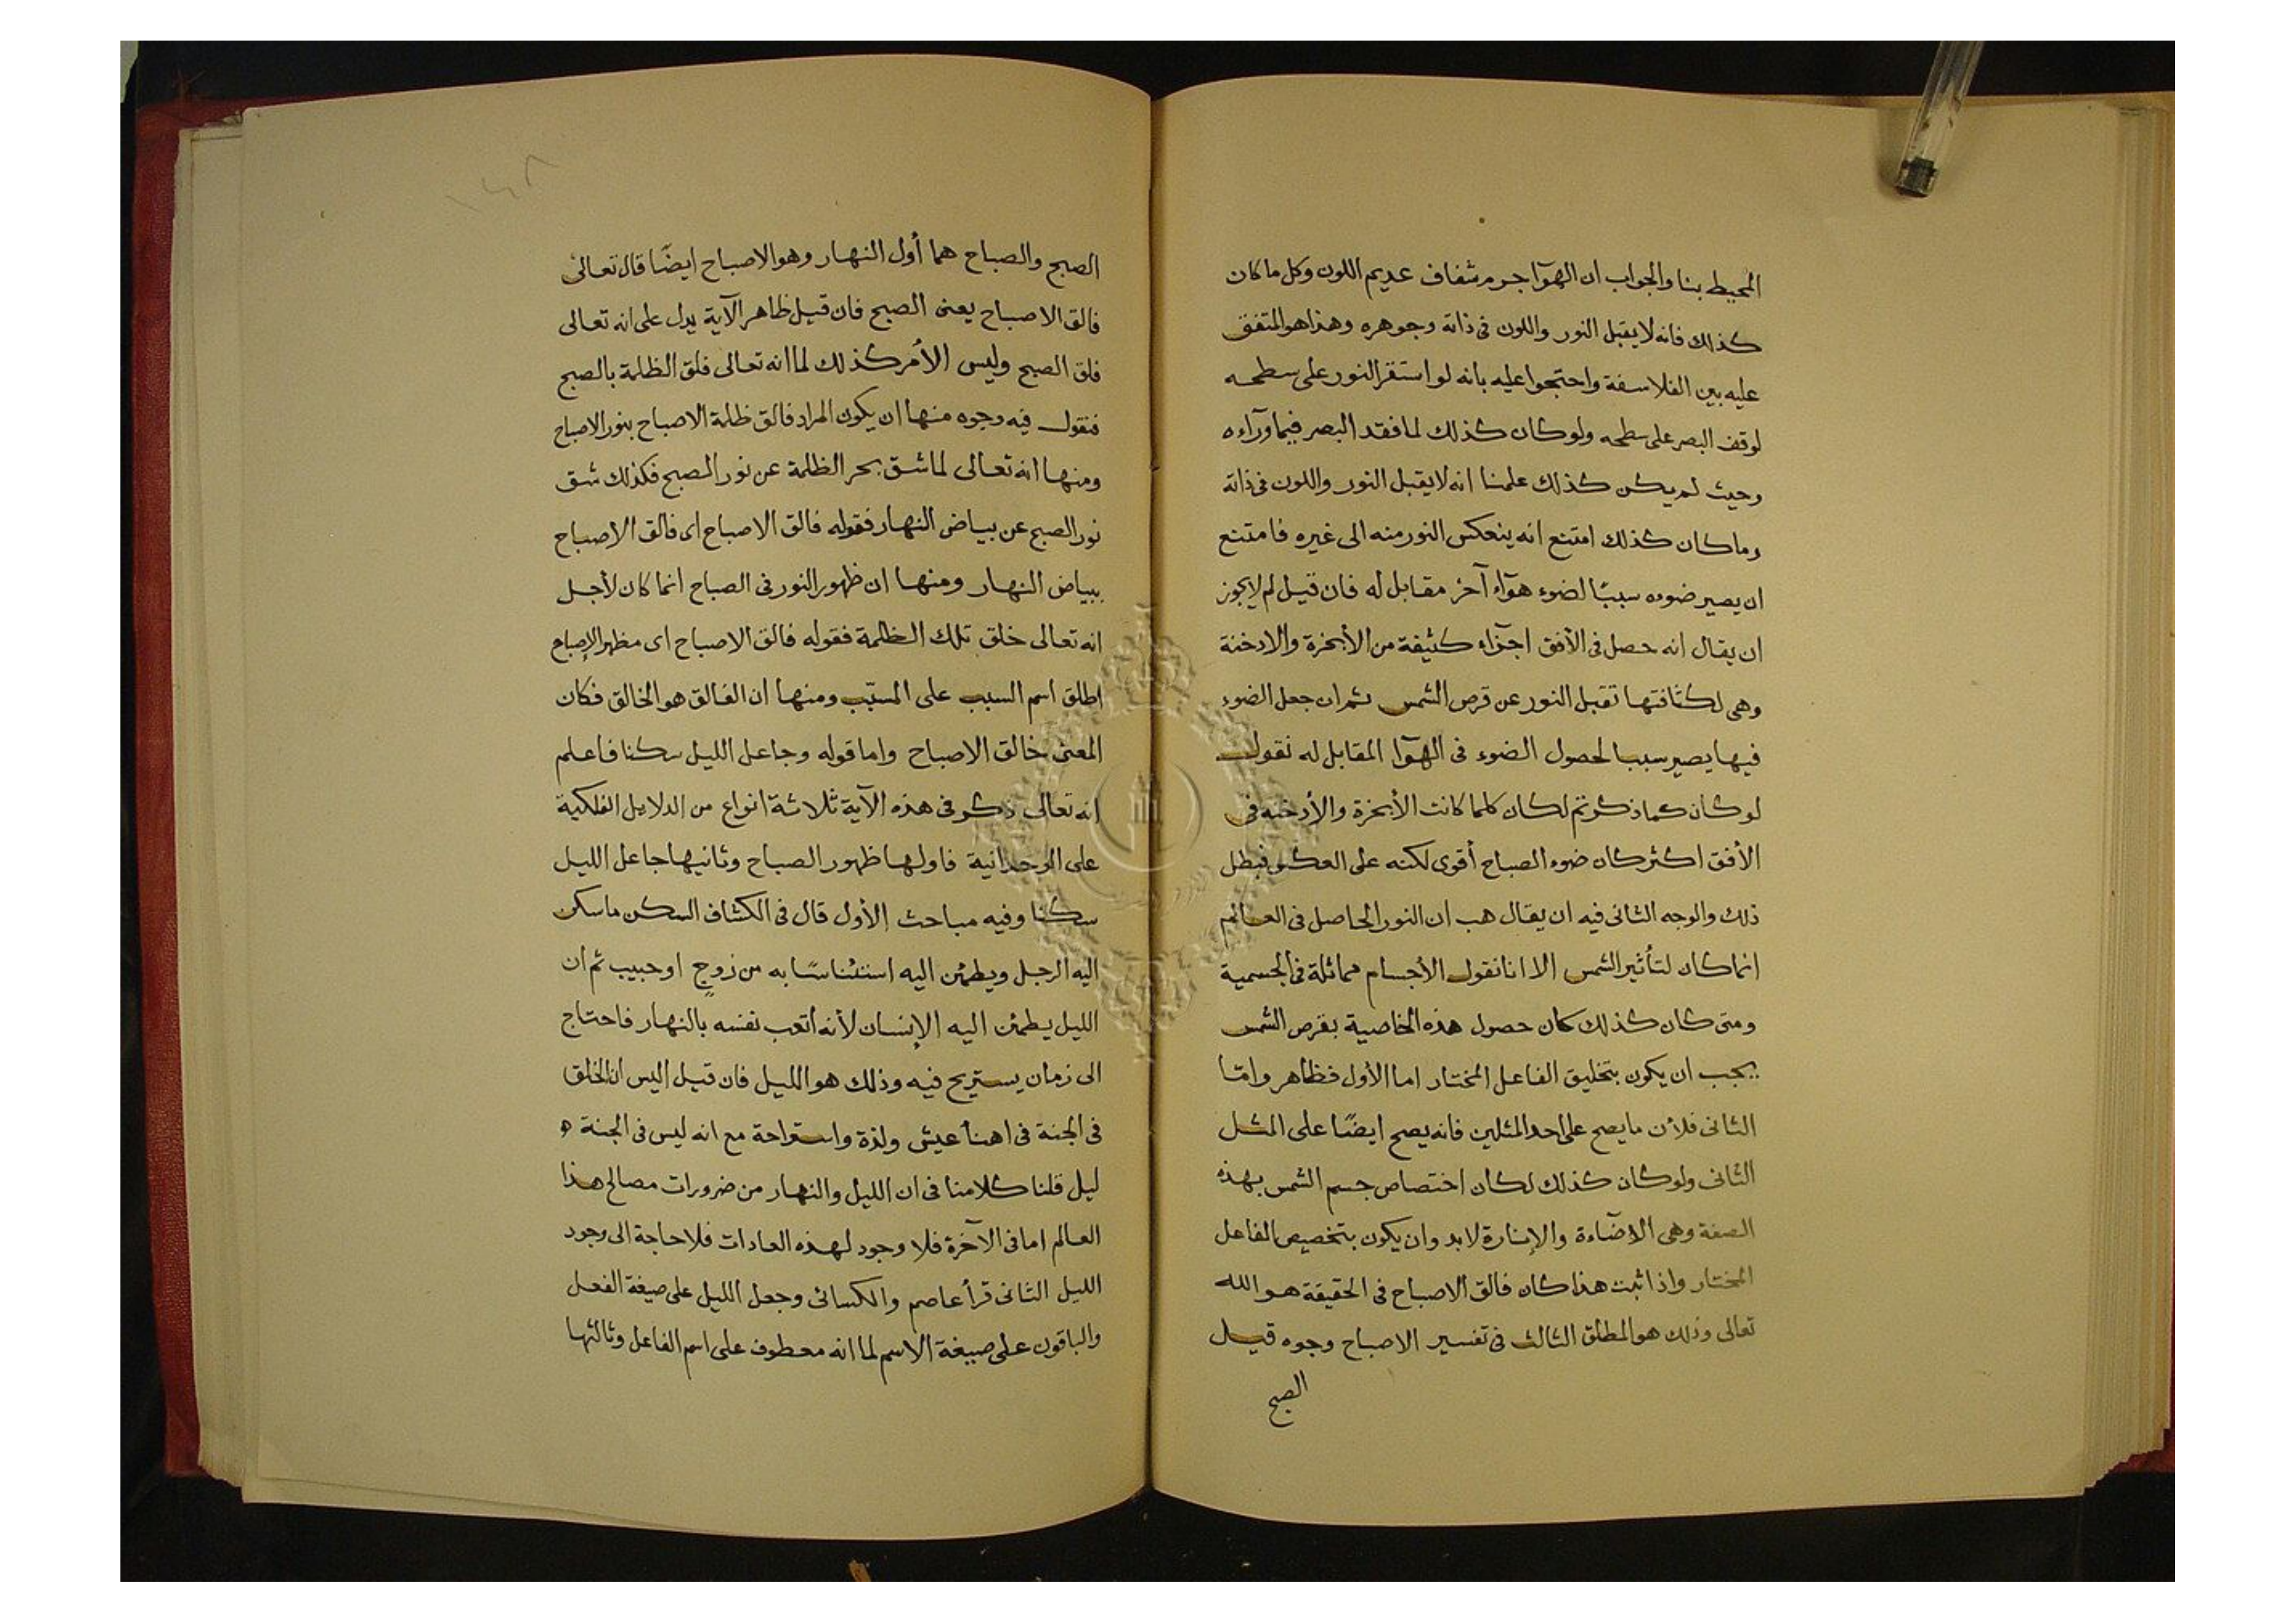 المحيط بنا والجواب ان الهوآ جرم شفاف عديم اللون وكل ما كان
كذلك فانه لا يقبل النور واللون فى ذاته وجوهره وهذا هو المتفق
عليه بين الفلاسفة واحتجوا عليه بانه لو استقر النور على سطحه
لوقف البصر على سطحه ولو كان كذلك لما فقد البصر فيما ورآءه
وحيث لم يكن كذلك علمنا انه لا يقبل النور واللون فى ذاته
وما كان كذلك امتنع انه ينعكس النور منه الى غيره فامتنع
ان يصير ضوءه سببًا لضوء هوآء آخر مقابل له فان قيل لم لا يجوز
ان يقال انه حصل فى الأفق اجزاء كثيفة من الأبخرة والادخنة
وهى لكثافتها تقبل النور عن قرص الشمس ثم ان جعل الضوء
فيها يصير سببا لحصول الضوء فى الهوآ المقابل له نقول
لو كان كما ذكرتم لكان كلما كانت الأبخرة والأدخنه فى
الأفق اكثر كان ضوء الصباح أقوى لكنه على العكس فبطل
ذلك والوجه الثانى فيه ان يقال هب ان النور الحاصل فى العالم
انما كان لتأثير الشمس الا انا نقول الأجسام مماثلة فى الجسمية
ومتى كان كذلك كان حصول هذه الخاصية بقرص الشمس
يجب ان يكون بتخليق الفاعل المختار اما الأول فظاهر وامّا
الثانى فلأن ما يصح على احد المثلين فانه يصح ايضًا على المثل
الثانى ولو كان كذلك لكان اختصاص جسم الشمس بهذه
الصفة وهى الاضآءة والإنارة لابد وان يكون بتخصيص الفاعل
المختار واذا ثبت هذا كان فالق الاصباح فى الحقيقة هو الله
تعالى وذلك هو المطلق الثالث فى تفسير الاصباح وجوه قيل
الصبح
١٤٨
الصبح والصباح هما أول النهار وهو الاصباح ايضًا قال تعالى
فالق الاصباح يعنى الصبح فان قيل ظاهر الآية يدل على انه تعالى
فلق الصبح وليس الأمر كذلك لما انه تعالى فلق الظلمة بالصبح
فنقول فيه وجوه منها ان يكون المراد فالق ظلمة الاصباح بنور الاصباح
ومنها انه تعالى لما شق بحر الظلمة عن نور الصبح فكذلك شق
نور الصبح عن بياض النهار فقوله فالق الاصباح اى فالق الاصباح
ببياض النهار ومنها ان ظهور النور فى الصباح انما كان لأجل
انه تعالى خلق تلك الظلمة فقوله فالق الاصباح اى مظهر الإصباح
اطلق اسم السبب على المسبّب ومنها ان الفالق هو الخالق فكان
المعنى خالق الاصباح واما قوله وجاعل الليل سكنا فاعلم
انه تعالى ذكر فى هذه الآية ثلاثة انواع من الدلايل الفلكية
على الوحدانية فاولها ظهور الصباح وثانيها جاعل الليل
سكنا وفيه مباحث الأول قال فى الكشاف السكن ما سكن
اليه الرجل ويطمئن اليه استئناسًا به من زوجٍ او حبيب ثم ان
الليل يطمئن اليه الإنسان لأنه أتعب نفسه بالنهار فاحتاج
الى زمان يستريح فيه وذلك هو الليل فان قيل اليس ان الخلق
فى الجنة فى اهنأ عيش ولذة واستراحة مع انه ليس فى الجنة
ليل قلنا كلامنا فى ان الليل والنهار من ضرورات مصالح هذا
العالم اما فى الآخرة فلا وجود لهذه العادات فلا حاجة الى وجود
الليل الثانى قرأ عاصم والكسائى وجعل الليل على صيغة الفعل
والباقون على صيغة الاسم لما انه معطوف على اسم الفاعل وثالثها